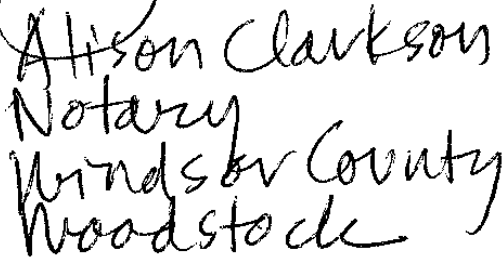 Alison Clarkson
Notary
Windsor County
Woodstock